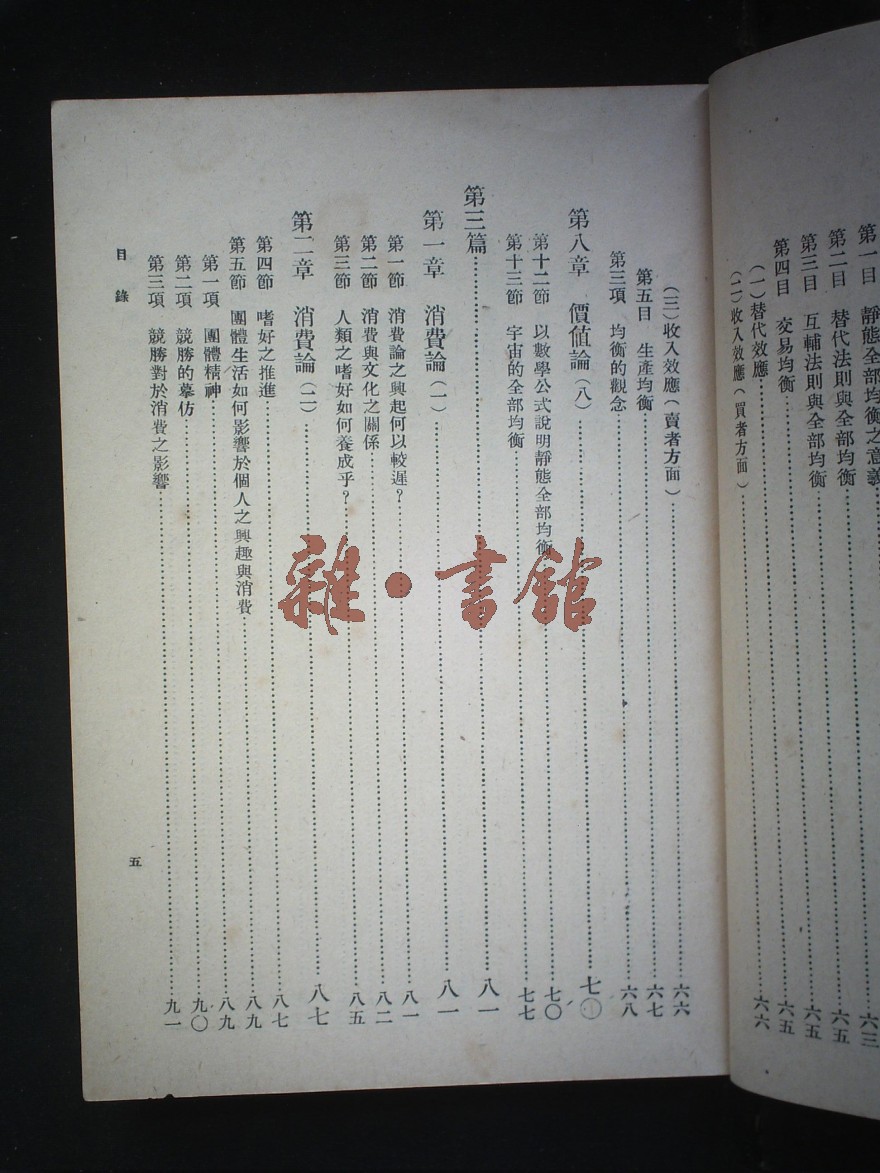 第一目 靜態全部均衡之意義……六三
第二目 替代法則與全部均衡……六五
第三目 互輔法則與全部均衡……六五
第四目 交易均衡……六五
(一)替代效應……六六
(二)收入效應(買者方面)
(三)收入效應(賣者方面)……六六
第五目 生產均衡……六七
第三項 均衡的觀念……六八
第八章 價值論(八)……七〇
第十二節 以數學公式說明靜態全部均衡……七〇
第十三節 宇宙的全部均衡……七七
第三篇……八一
第一章 消費論(一)……八一
第一節 消費論之興起何以較遲?……八一
第二節 消費與文化之關係……八二
第三節 人類之嗜好如何養成乎?……八五
第二章 消費論(二)……八七
第四節 嗜好之推進……八七
第五節 團體生活如何影響於個人之興趣與消費……八九
第一項 團體精神……八九
第二項 競勝的摹仿……九〇
第三項 競勝對於消費之影響……九一
目錄
五
雜·書館